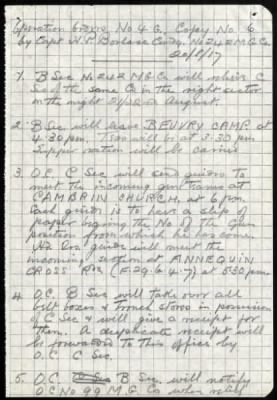 Operation Orders No 4 G. Copy No 6
by Capt W.P. Cmdg No 242 M.G. Co
20/8/17
1. B Sec No 242 M.G. Co will relieve C
Sec of the same Co in the right sector
on the night August.
2. B Sec will leave BEUVRY CAMP at
4.30 pm. Teas will be at 3.30 pm
Supper ration will be carried
3. O.C. C Sec will send guides to
meet the incoming gun teams at
CAMBRIN CHURCH, at 6 pm.
Each guide is to have a slip of
paper bearing the No of the gun
position from which he has come.
Hd Qrs guide will meet the
incoming section at ANNEQUIN
CROSS Rds at 5.30 pm
4. O.C. B Sec will take over all
belt boxes & trench stores in possession
of C Sec & will give a receipt for
them. A duplicate receipt will
be forwarded to this office by
O.C. C Sec.
5. O.C. B Sec. will notify
O.C. No 99 M.G. Co when relief